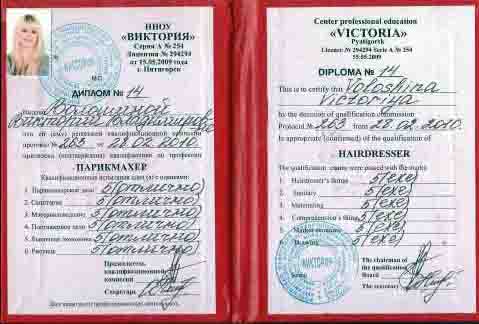 ННОУ
«ВИКТОРИЯ»
Серия А № 254
Лицензия № 294294
от 15.05.2009 года
г. Пятигорск
М.П.
ДИПЛОМ № 14
Выдан Волошиной
Виктории Владимировне
протокол № 263 от 28.02.2010.
ПАРИКМАХЕР
Квалификационные испытания сдал(а) с оценками:
1. Парикмахерское дело 5(отлично)
2. Санитария 5(отлично)
3. Материаловедение 5(отлично)
4. 5(отлично)
5. Рыночная экономика 5(отлично)
6. Рисунок 5(отлично)
Председатель
квалификационной
комиссии
Секретарь
ВИКТОРИЯ
Center professional education
«VICTORIA»
Pyatigorsk
License № 294294 Serie A № 254
15.05.2009
DIPLOMA № 14
This is to certify that Voloshina
Victoriya
by the decision of qualification commission
Protocol № 263 from 28.02.2010.
Is appropriate (confirmed) of the qualification of
HAIRDRESSER
The qualification exams were passed with the marks:
1. Hairdresser's 5(exe)
2. Sanitary 5(exe)
3. Materialing 5(exe)
4. 5(exe)
5. Market economic 5(exe)
6. Drawing 5(exe)
The chairman of
the qualification
Board
The secretary
ВИКТОРИЯ